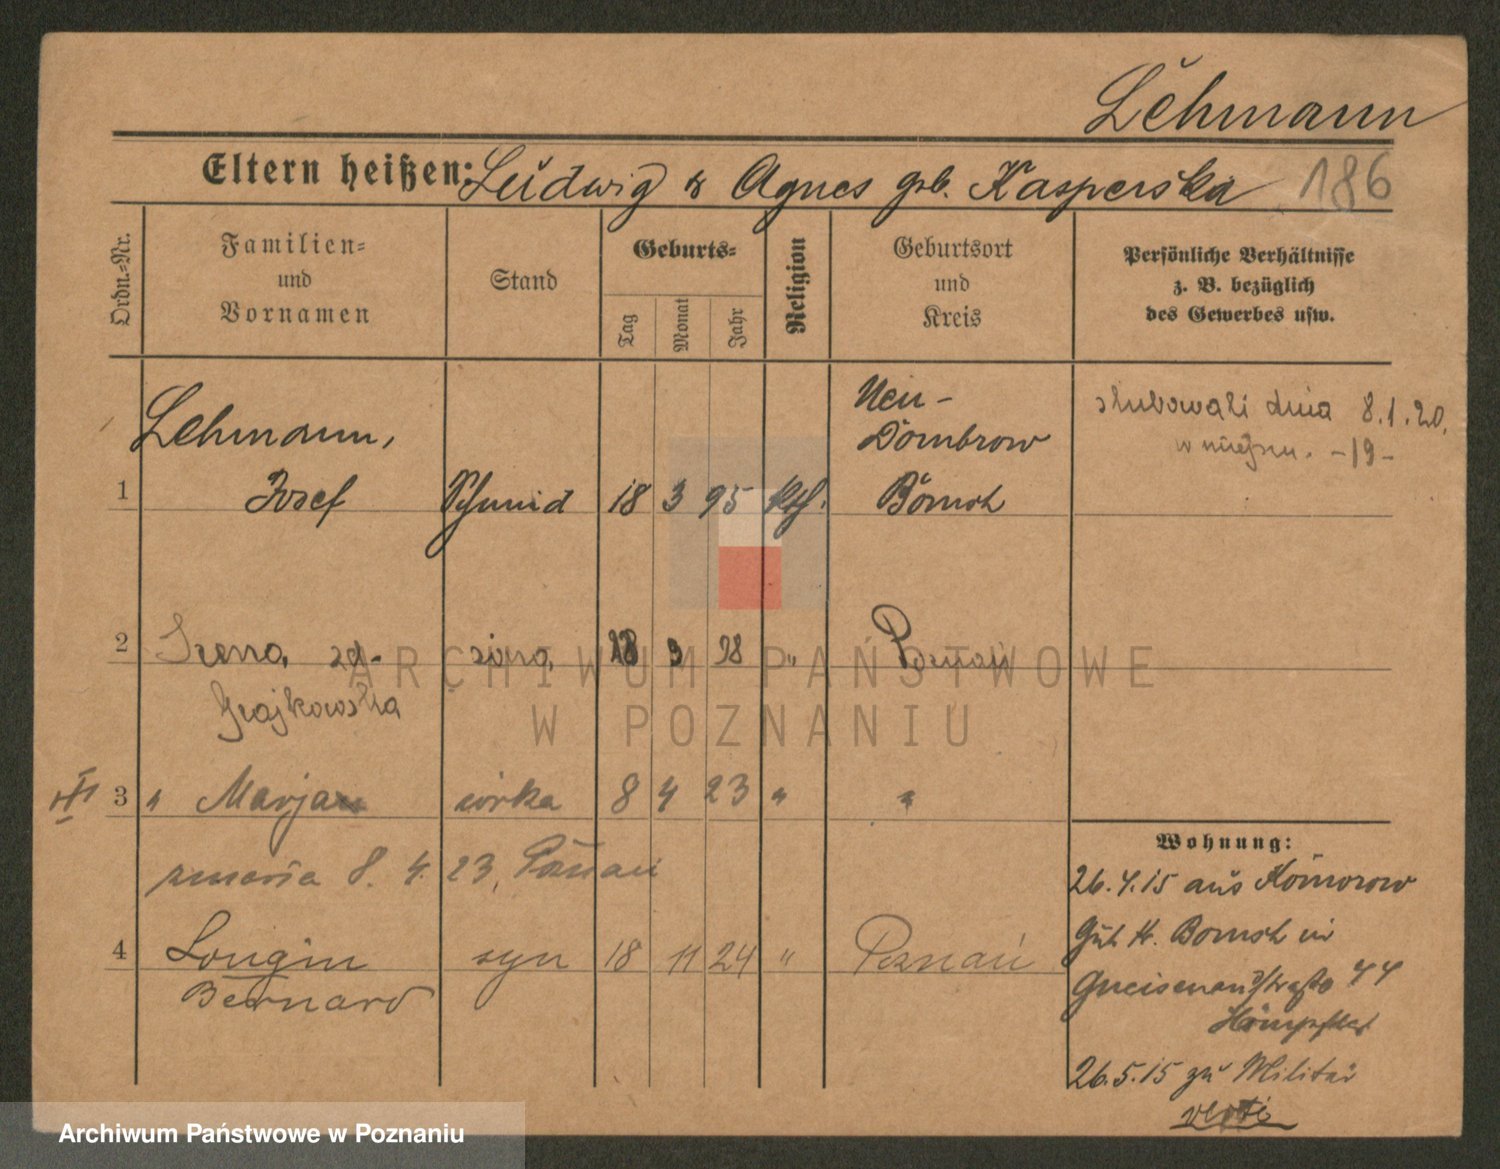 Lehmann
Eltern heißen: Ludwig & Agnes geb. Kasperska 186
Ordn.-Nr.
Familien- und Vornamen
Stand
Geburts-
Tag Monat Jahr
Religion
Geburtsort und Kreis
Persönliche Verhältnisse
z. B. bezüglich
des Gewerbes usw.
Lehmann,
Neu-
Dombrow
ślubowali dnia 8.1.20.
w miejscu. -19-
1 Josef Schmid 18 3 95 kth. Bomst
2 Irena zd- żona 18 3 98 " Poznań
Grajkowska
3 " Marja córka 8 4 23 " "
zmarła 8. 4. 23, Poznań
4 Longin syn 18 11 24 " Poznań
Bernard
Wohnung:
26.4.15 aus Komorowo
Gut Kr. Bomst in
Gneisenaustraße 44
26.5.15 zu Militär
verte
ARCHIWUM PAŃSTWOWE
W POZNANIU
Archiwum Państwowe w Poznaniu